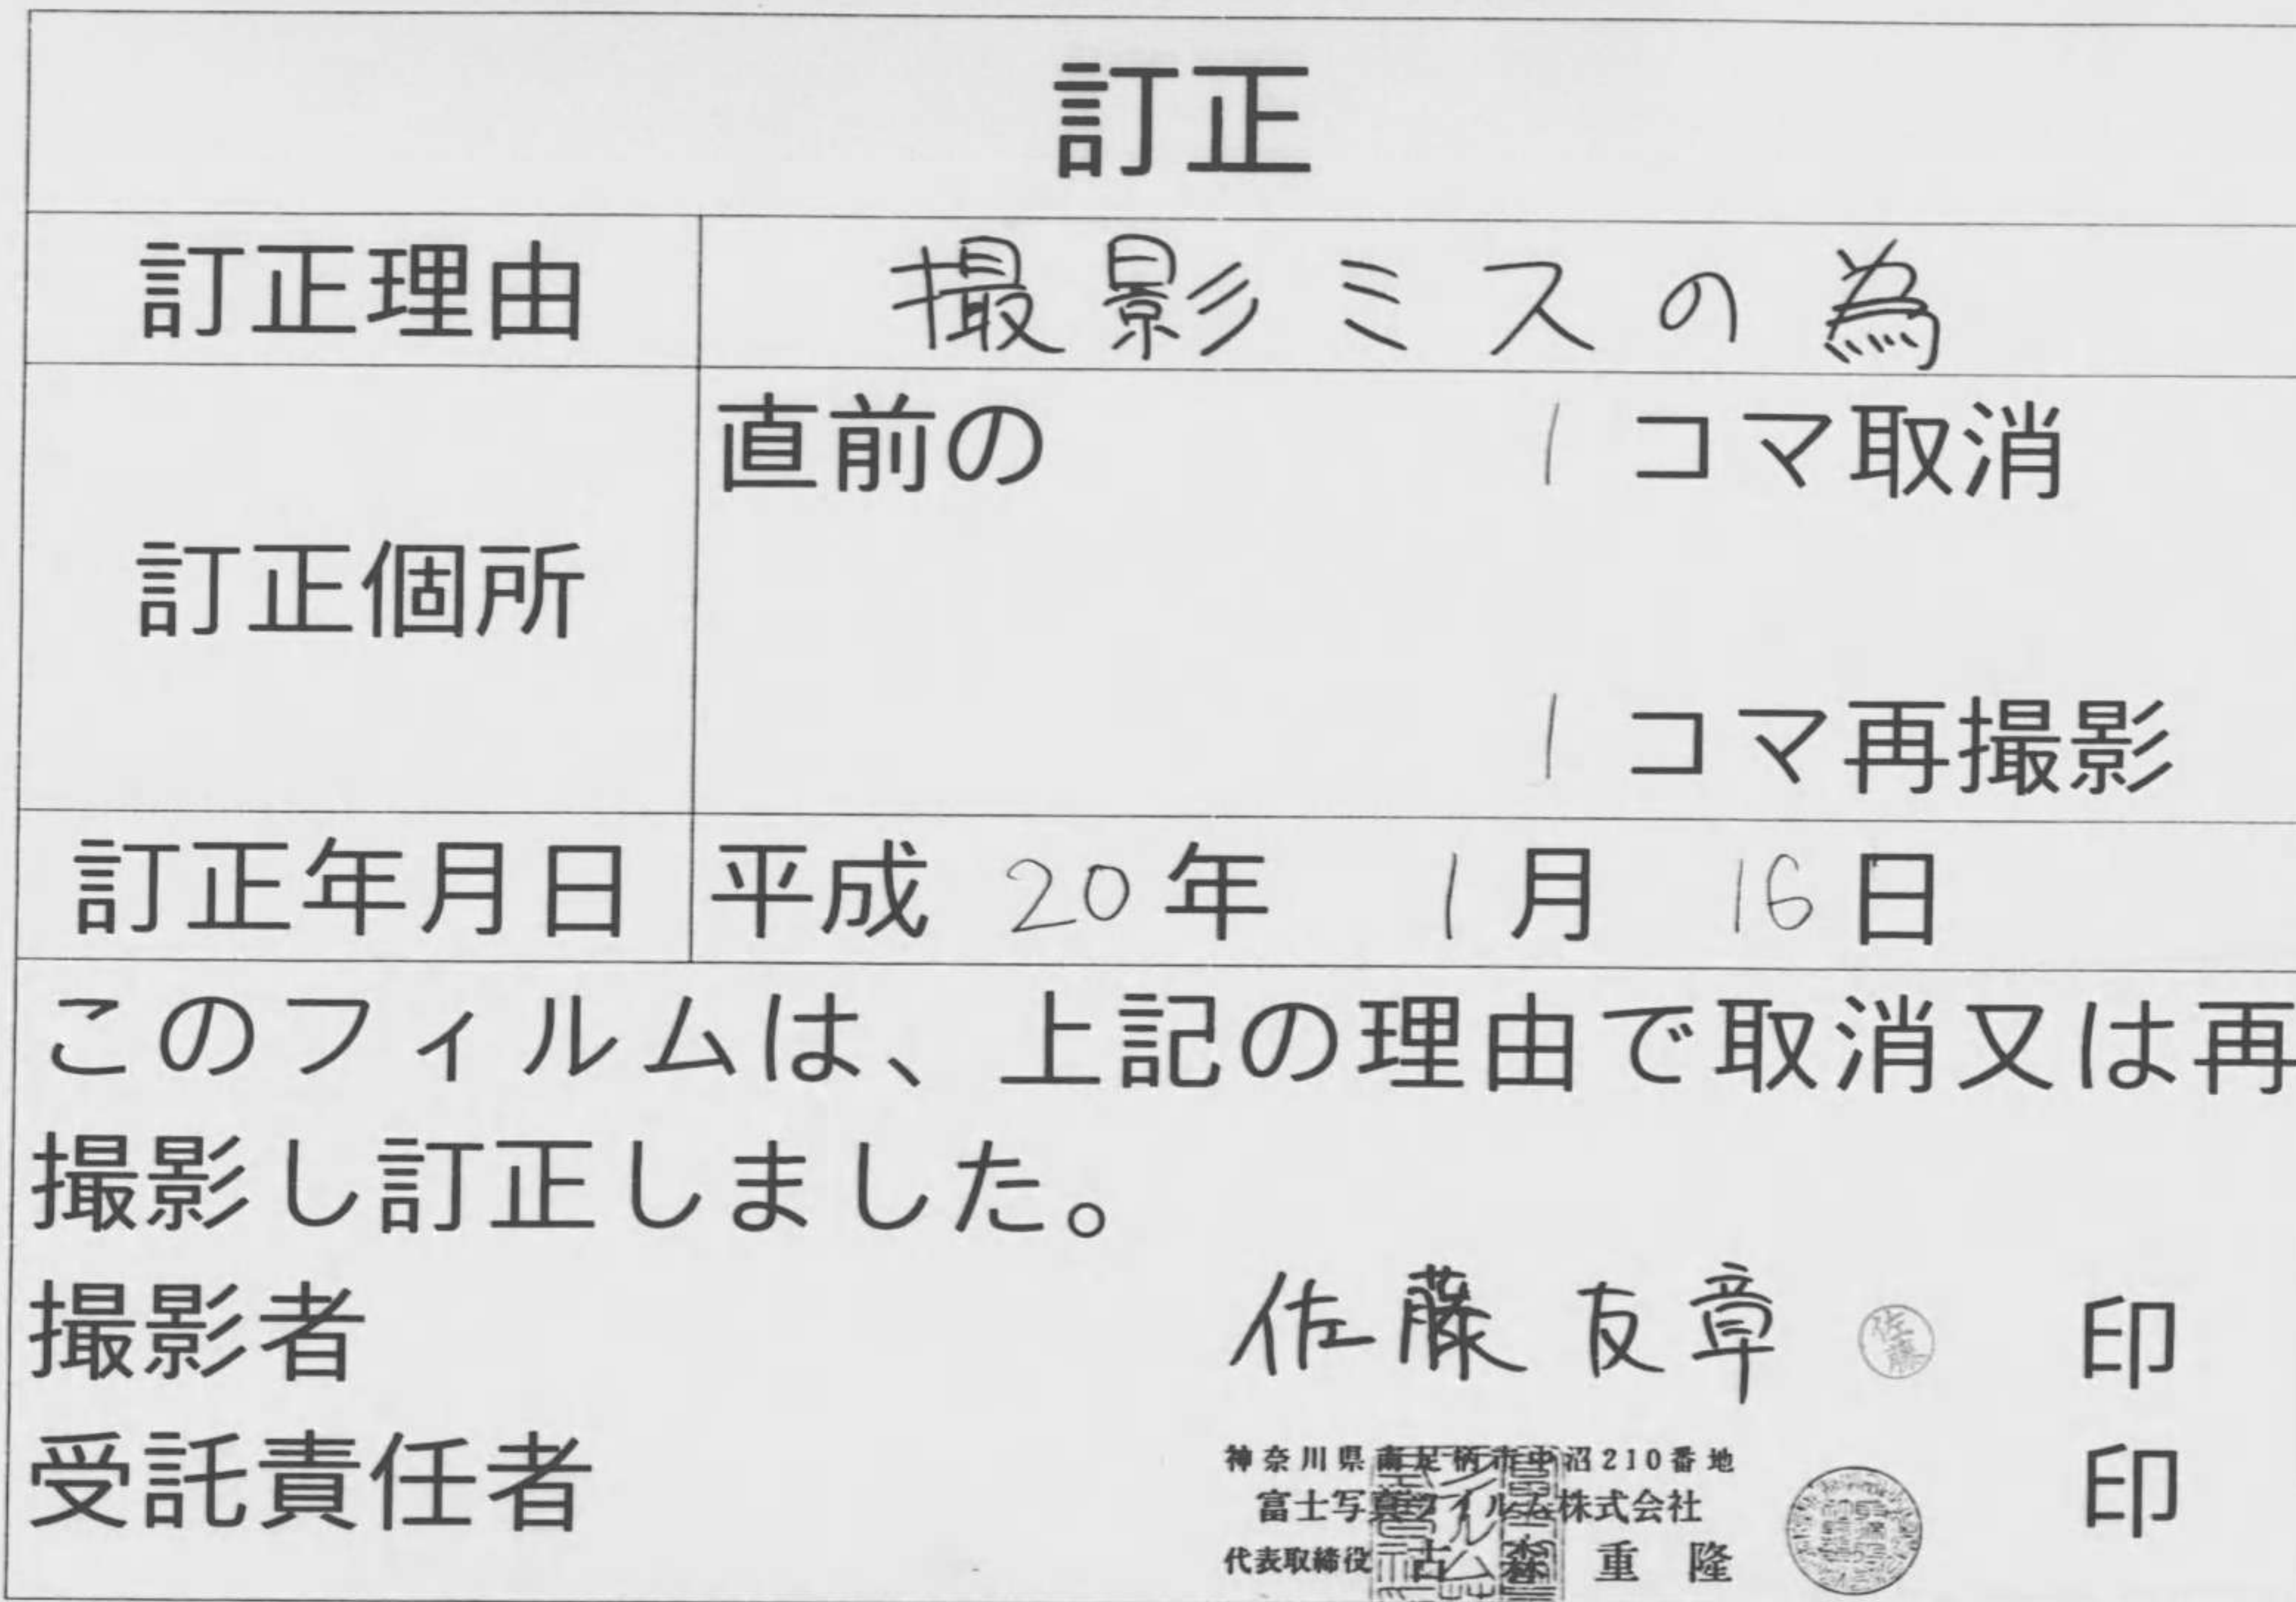 訂正
訂正理由 撮影ミスの為
訂正個所 直前の 1 コマ取消
1 コマ再撮影
訂正年月日 平成 20 年 1 月 16 日
このフィルムは、上記の理由で取消又は再
撮影し訂正しました。
撮影者 佐藤友章 佐藤 印
受託責任者 印
神奈川県南足柄市中沼210番地
富士写真フイルム株式会社
代表取締役 古森重隆